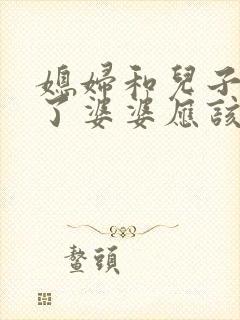 媳婦和兒子
了婆婆應該
鼇頭